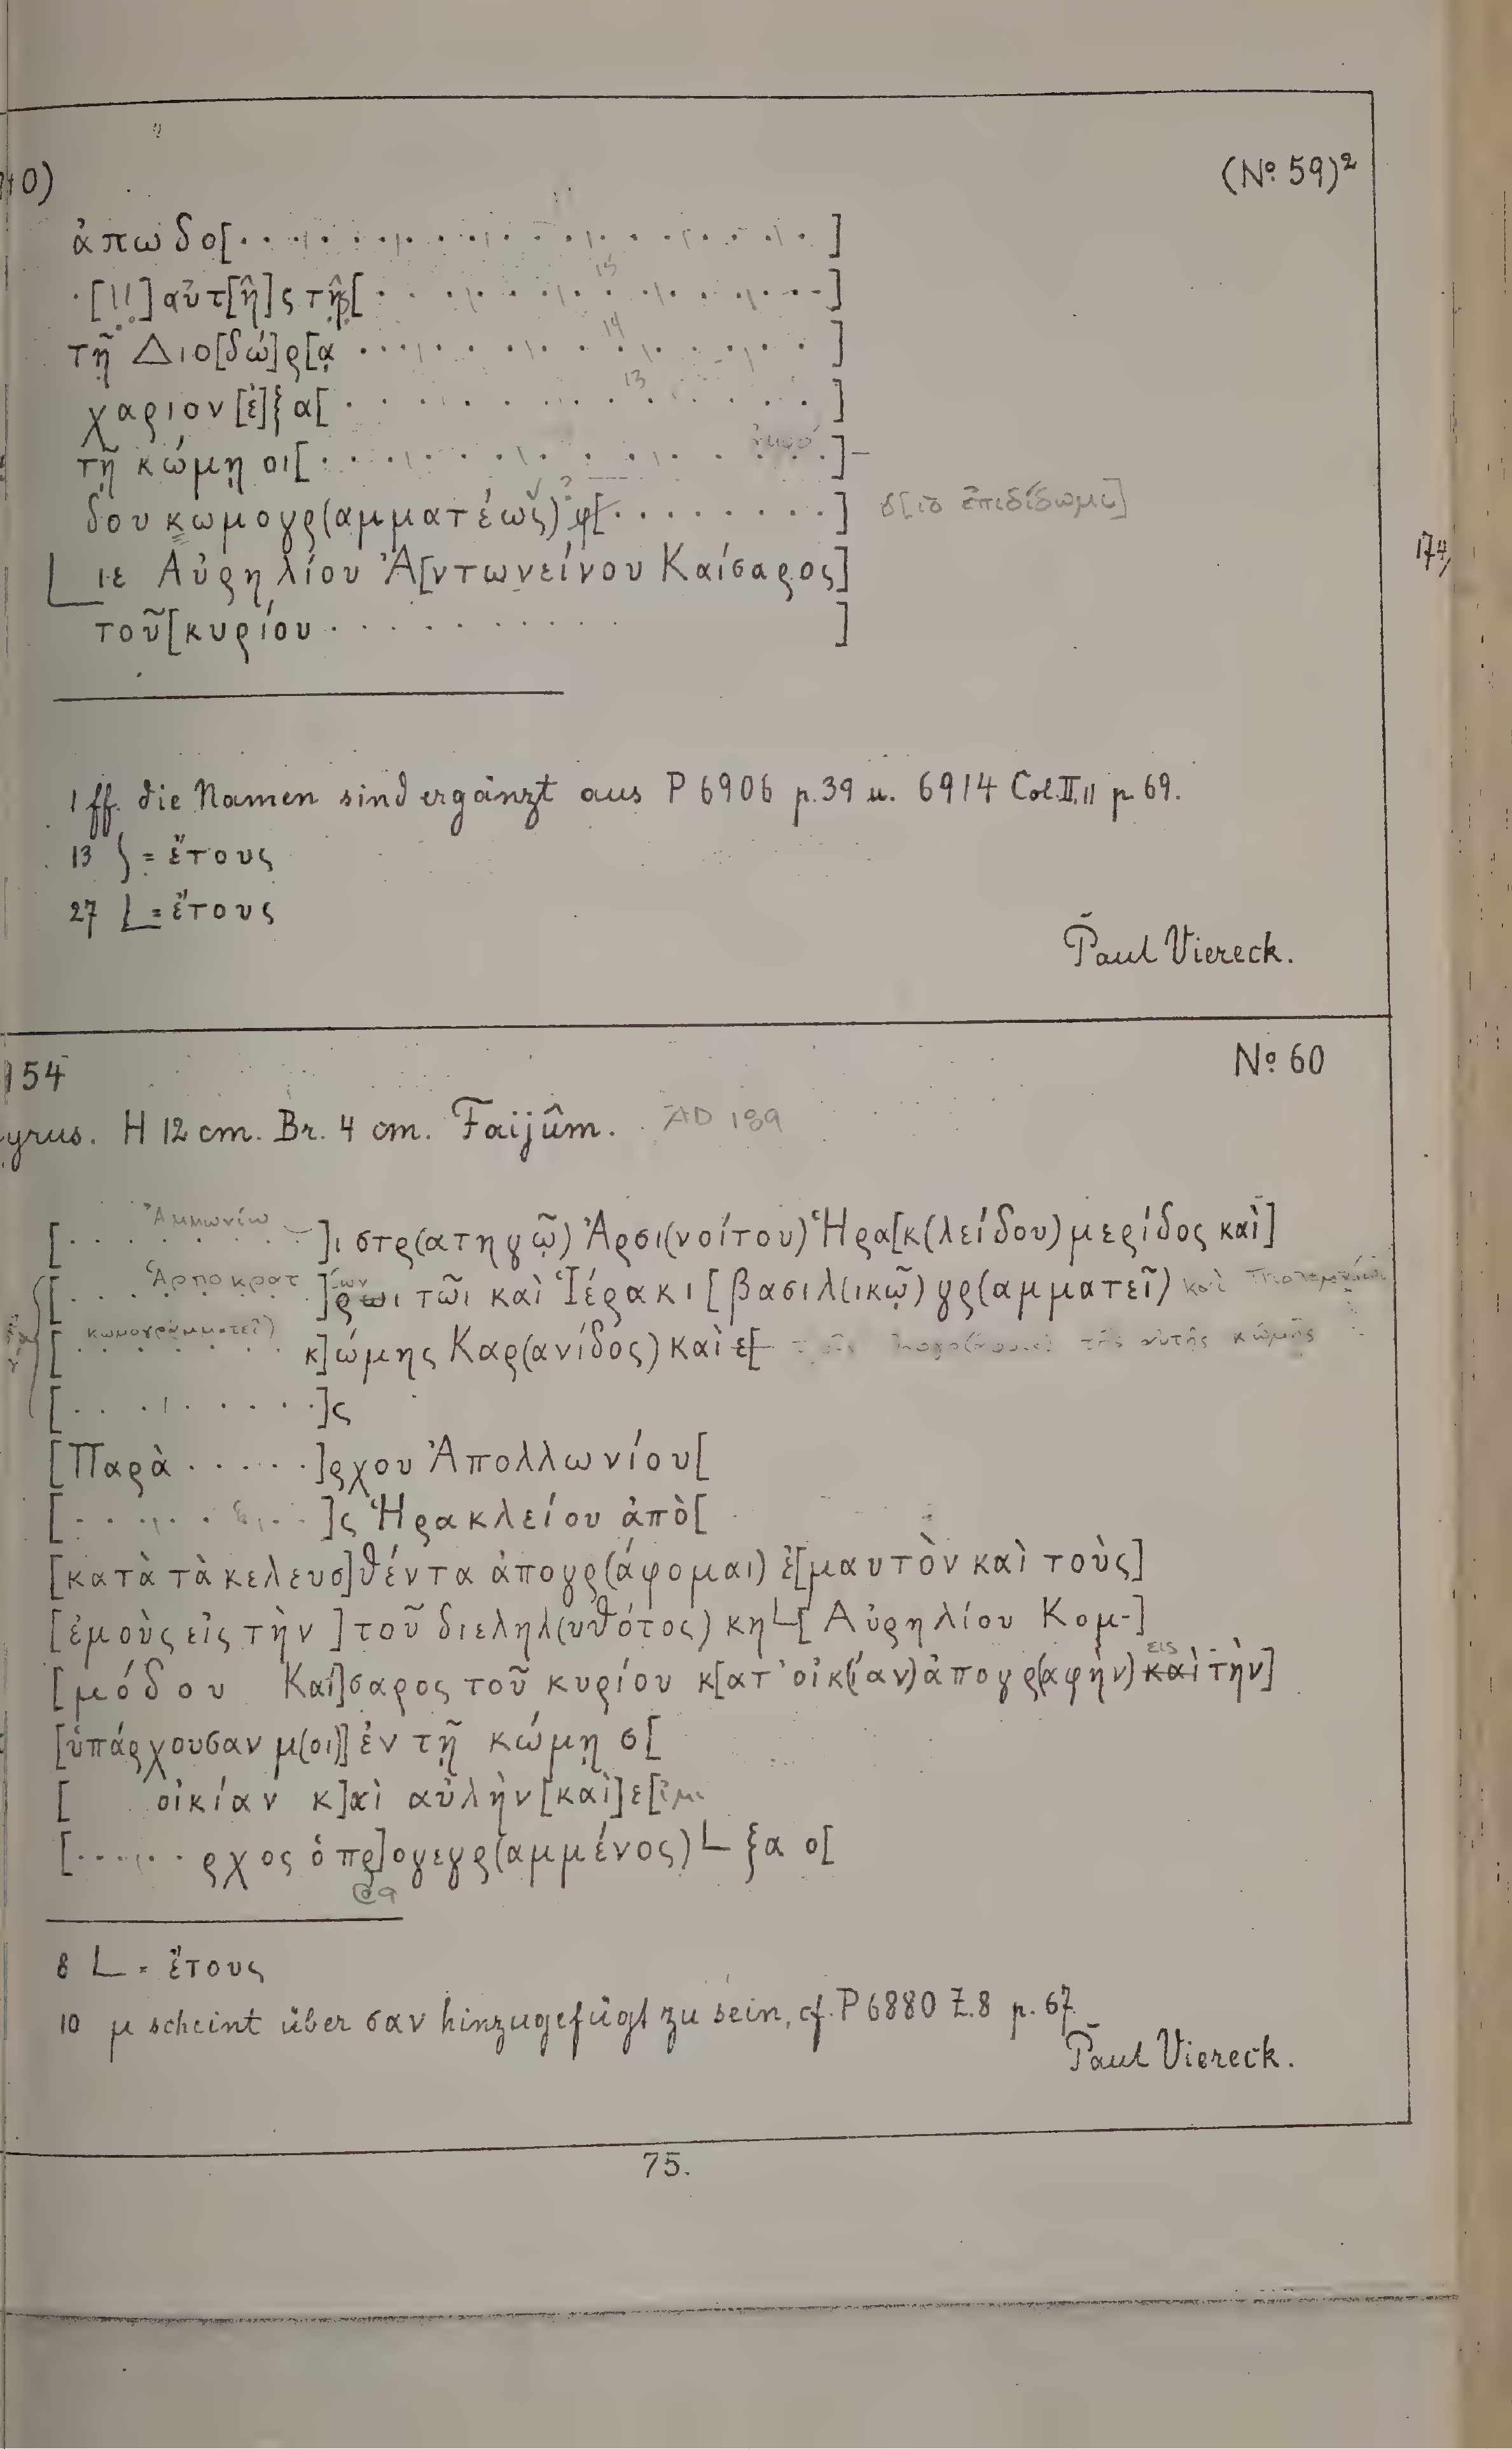 40) (No 59)²
ἀπωδο[· · · · · · · · · · · · · · ·]
·[!!]αὐτ[ῆ]ς τῆς[· · · · · · · · · · · ·]
15
τῇ Διο[δώ]ρ[ᾳ · · · · · · · · · · · ·]
14
χαριον[ἐ]ξα[· · · · · · · · · · · ·]
13
τῇ κώμῃ οι[· · · · · · · · · · · ·]
δου κωμογρ(αμματέως) φ[· · · · · · · ·] δ[ιὸ ἐπιδίδωμι]
L ιε Αὐρηλίου Ἀ[ντωνείνου Καίσαρος]
174
τοῦ[κυρίου · · · · · · · · · · ]
1 ff. die Namen sind ergänzt aus P 6906 p. 39 u. 6914 Col. II, 11 p. 69.
13 ʃ = ἔτους
27 L = ἔτους
Paul Viereck.
154 No 60
yrus. H 12 cm. Br. 4 cm. Faijûm. AD 189
Ἀμμωνίω
[· · · · · · · ·]ι στρ(ατηγῷ) Ἀρσι(νοίτου) Ἡρα[κ(λείδου) μερίδος καὶ]
Ἁρποκρατ ίων
[· · · · · · · ·]ρωι τῶι καὶ Ἱέρακι [βασιλ(ικῷ) γρ(αμματεῖ) καὶ
κωμογραμματεῖ)
[· · · · · · · · κ]ώμης Καρ(ανίδος) καὶ ε[ τῆς αὐτῆς κώμης
[· · · · · · · ·]ς
[Παρὰ · · · · ·]ρχου Ἀπολλωνίου[
[· · · · · · · ·]ς Ἡρακλείου ἀπὸ[
[κατὰ τὰ κελευσ]θέντα ἀπογρ(άφομαι) ἐ[μαυτὸν καὶ τοὺς]
[ἐμοὺς εἰς τὴν ]τοῦ διεληλ(υθότος) κηL[ Αὐρηλίου Κομ-]
[μόδου Καί]σαρος τοῦ κυρίου κ[ατ' οἰκ(ίαν) ἀπογρ(αφὴν) καὶ εις τὴν]
[ὑπάρχουσαν μ(οι)] ἐν τῇ κώμῃ σ[
[ οἰκίαν κ]αὶ αὐλὴν [καὶ]ε[ἰμι
[· · · · · · ρχος ὁ πρ]ογεγρ(αμμένος) L ξα ο[
8 L = ἔτους
10 μ scheint über σαν hinzugefügt zu sein, cf. P 6880 Z. 8 p. 67.
Paul Viereck.
75.